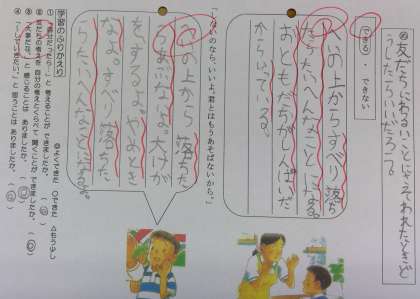 友だちにわるいことにさそわれたときど
うしたらいいだろう。
できる
できない
へいの上からすべり落ち
たらたいへんなことになる。
おともだちがしんぱいだ
からいっている。
「しないのなら、いいよ。君とはもうあそばないから。」
の上から落ちた
らあぶないよ。大けが
をするよ。やめとき
なよ。すべり落ちた
らたいへんなことになる。
学習のふりかえり
◎よくできた ○できた △もう少し
① 「自分だったら…」と考えることができましたか。
② 友だちの考えを自分の考えとくらべて聞くことができましたか。
③ 「大事だな。」と感じることはありましたか。
④ 「…していきたい。」と思うことはありましたか。